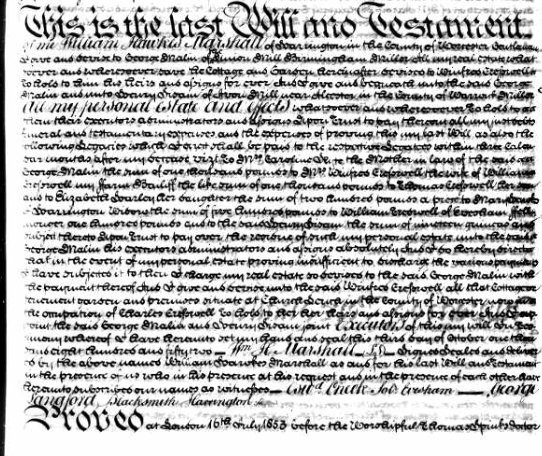 This is the last Will and Testament
of me William Hawkes Marshall of Harvington in the County of Worcester Gentleman
I give and devise to George Malin of Union Mill Birmingham Miller all my real estate what
soever and wheresoever save the Cottage and Garden hereinafter devised to Winifred Creswell
To hold to him his heirs and assigns for ever I also give and bequeath unto the said George
Malin and unto Henry of Mill near in the County of Warwick Miller
all my personal Estate and effects whatsoever and wheresoever To hold to
them their executors administrators and assigns Upon Trust to pay thereout all my just debts
funeral and testamentary expenses and the expenses of proving this my last Will as also the
following Legacies which I direct shall be paid to the respective Legatees within three Calen
dar months after my decease vizt To Mrs Caroline the Mother in law of the said
George Malin the sum of one thousand pounds to Mrs Winifred Creswell the wife of William
Creswell my Farm Bailiff the like sum of one thousand pounds to Thomas Creswell her son
and to Elizabeth her daughter the sum of two hundred pounds a piece to Mary
of Harvington Widow the sum of five hundred pounds to William Creswell of Evesham
one hundred pounds and to the said Henry the sum of nineteen guineas and
subject thereto Upon Trust to pay over the residue of such my personal estate unto the said
George Malin his executors administrators and assigns absolutely And I do hereby
that in the event of my personal estate proving insufficient to discharge the various payments
I have subjected it to then I charge my real estate so devised to the said George Malin with
the payment thereof Also I give and devise unto the said Winifred Creswell all that Cottage
tenement garden and premises situate at Church in the County of Worcester now in
the occupation of Charles Creswell To hold to her her heirs and assigns for ever And I ap
point the said George Malin and Henry joint Executors of this my will In tes
timony whereof I have hereunto set my hand and seal this third day of October one thou
sand eight hundred and fifty two — Wm H. Marshall — Signed Sealed and delivered
by the above named William Hawkes Marshall as and for his last Will and Testament
in the presence of us who in his presence at his request and in the presence of each other have
hereunto subscribed our names as witnesses — Cheek Solr Evesham — George
Langford Blacksmith Harvington
Proved at London 16th July 1853 before the Worshipful Thomas Spinks Doctor